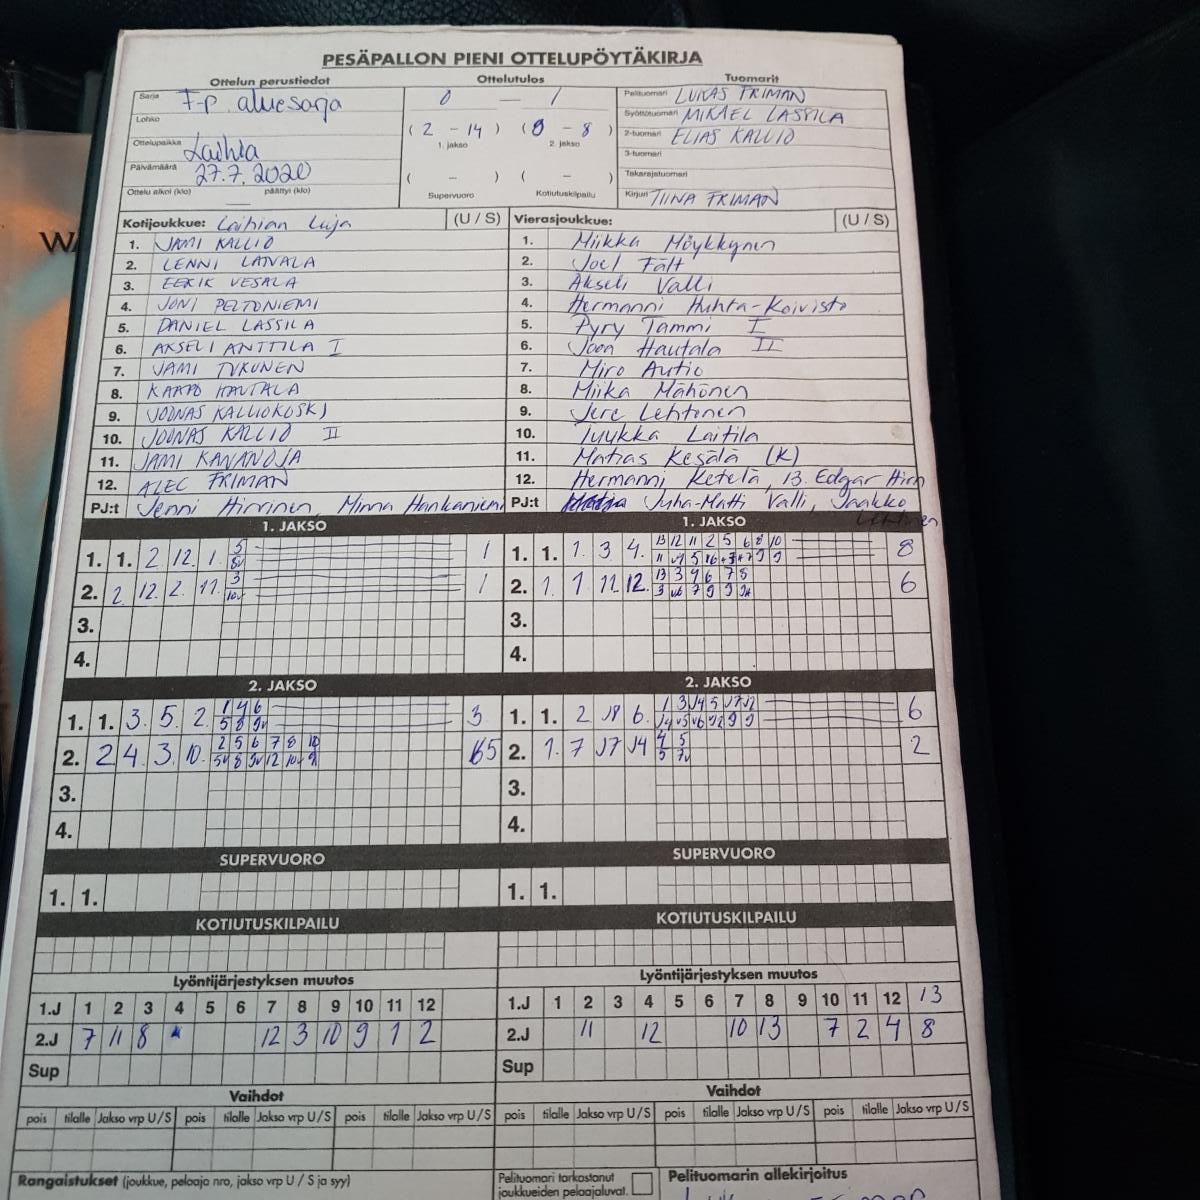 PESÄPALLON PIENI OTTELUPÖYTÄKIRJA
Ottelun perustiedot
Ottelutulos
Tuomarit
Sarja F-P aluesarja
0 — 1
Pelituomari LUKAS FRIMAN
Lohko
Syöttötuomari MIKAEL LASSILA
(2 - 14) (0 - 8)
2-tuomari ELIAS KALLIO
Ottelupaikka Laihia
1. jakso 2. jakso
3-tuomari
Päivämäärä 27.7.2020
( - ) ( - )
Takarajatuomari
Ottelu alkoi (klo) päättyi (klo)
Supervuoro Kotiutuskilpailu
Kirjuri TIINA FRIMAN
Kotijoukkue: Laihian Luja (U / S) Vierasjoukkue: (U / S)
1. JAMI KALLIO 1. Miikka Möykkynen
2. LENNI LATVALA 2. Joel Fält
3. EERIK VESALA 3. Akseli Valli
4. JONI PELTONIEMI 4. Hermanni Huhta-Koivisto
5. DANIEL LASSILA 5. Pyry Tammi I
6. AKSELI ANTTILA I 6. Joona Hautala II
7. JAMI TYKUNEN 7. Miro Autio
8. KAAPO HAUTALA 8. Miika Mähönen
9. JOONAS KALLIOKOSKI 9. Jere Lehtonen
10. JOONAS KALLIO II 10. Tuukka Laitila
11. JAMI KANANOJA 11. Matias Kesälä (K)
12. ALEC FRIMAN 12. Hermanni Ketelä, 13. Edgar Hirn
PJ:t Jenni Hirvinen, Minna Hankaniemi PJ:t Juha-Matti Valli, Jaakko
Lehtinen
1. JAKSO 1. JAKSO
1. 1. 2 12. 1. 5 1 1. 1. 1. 3 4. 13 12 11 2 5 6 8 10 8
2. 2. 12. 2. 11. 3 1 2. 1. 1 11. 12. 13 3 4 6 7 8 6
3. 3.
4. 4.
2. JAKSO 2. JAKSO
1. 1. 3. 5. 2. 1 4 6 3 1. 1. 2 J8 6. 6
2. 2 4. 3. 10. 2 5 6 7 8 10 5 2. 1. 7 J7 J4 4 5 2
3. 3.
4. 4.
SUPERVUORO SUPERVUORO
1. 1. 1. 1.
KOTIUTUSKILPAILU KOTIUTUSKILPAILU
Lyöntijärjestyksen muutos Lyöntijärjestyksen muutos
1.J 1 2 3 4 5 6 7 8 9 10 11 12 1.J 1 2 3 4 5 6 7 8 9 10 11 12 13
2.J 7 11 8 12 3 10 9 1 2 2.J 11 12 10 13 7 2 4 8
Sup Sup
Vaihdot Vaihdot
pois tilalle Jakso vrp U / S pois tilalle Jakso vrp U / S pois tilalle Jakso vrp U / S pois tilalle Jakso vrp U / S pois tilalle Jakso vrp U / S pois tilalle Jakso vrp U / S
Rangaistukset (joukkue, pelaaja nro, jakso vrp U / S ja syy)
Pelituomari tarkastanut
joukkueiden pelaajaluvat.
Pelituomarin allekirjoitus